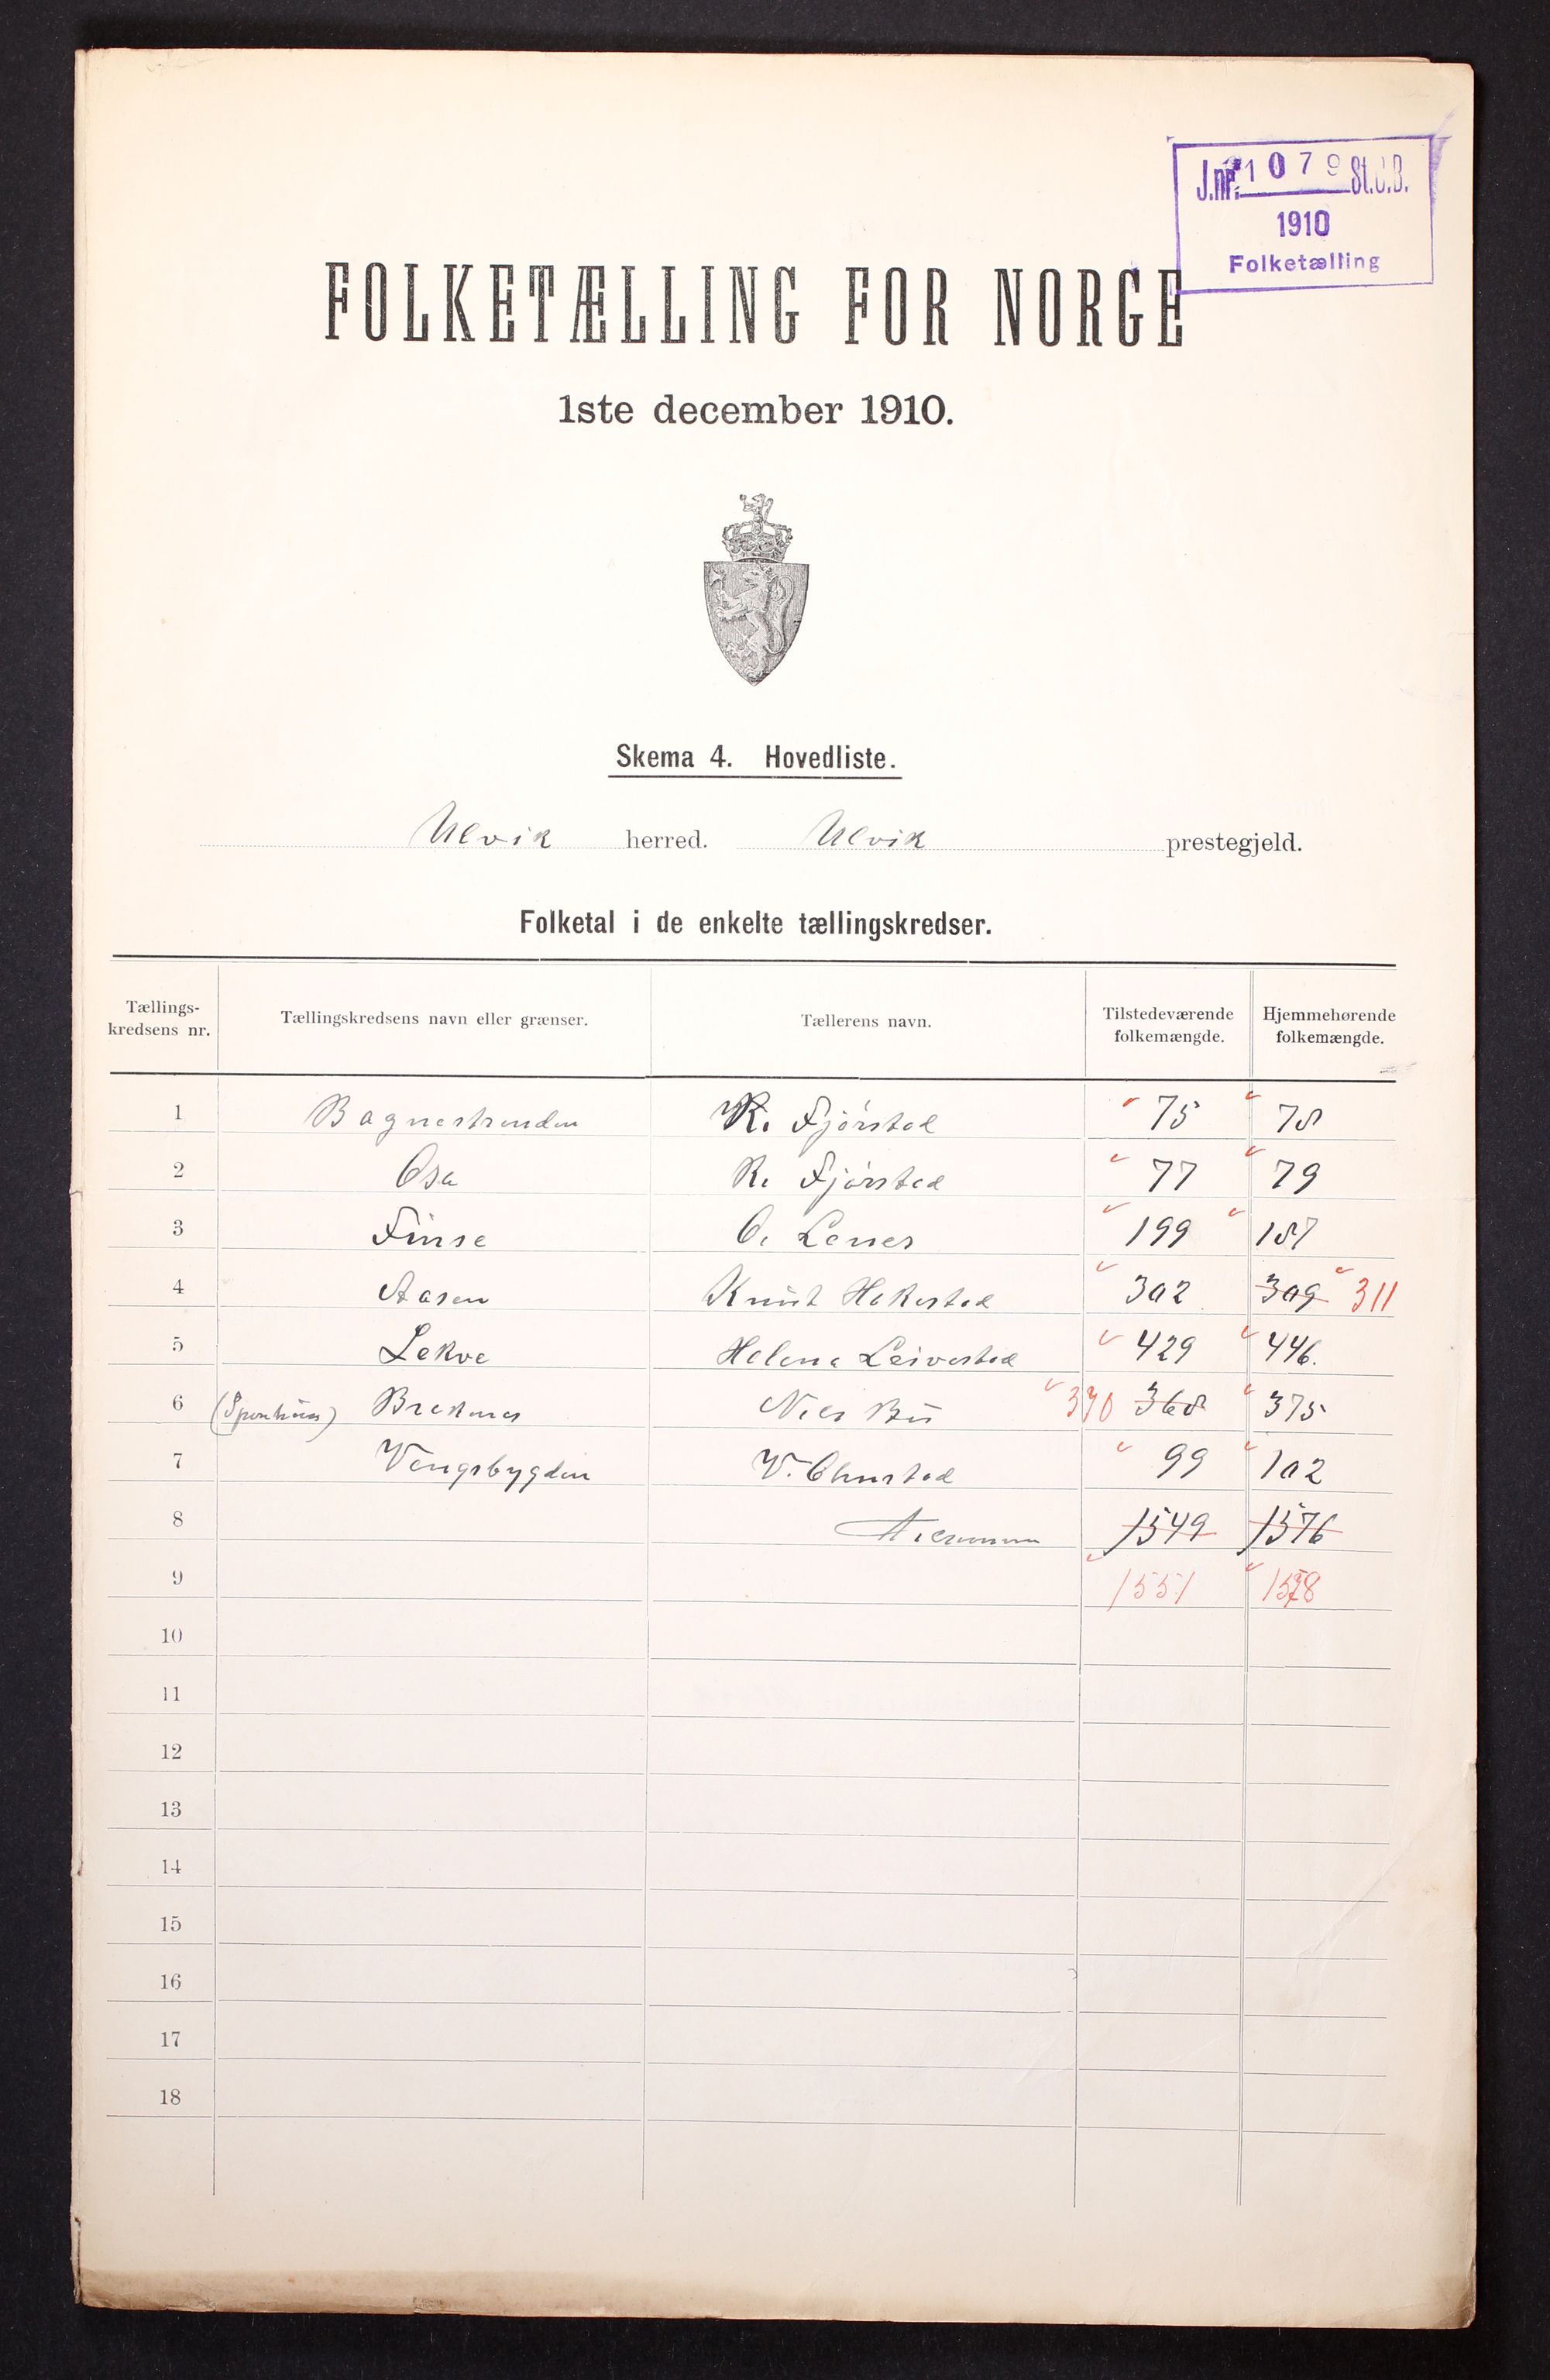 J.nr. 1079 St.C.B.
1910
Folketælling
FOLKETÆLLING FOR NORGE
1ste december 1910.
Skema 4. Hovedliste.
Ulvik herred. Ulvik prestegjeld.
Folketal i de enkelte tællingskredser.
Tællings-
kredsens nr.
Tællingskredsens navn eller grænser.
Tællerens navn.
Tilstedeværende
folkemængde.
Hjemmehørende
folkemængde.
1 Bagnestranden R. Fjørstad 75 78
2 Osa R. Fjørstad 77 79
3 Finse O. 199 187
4 Aasen Knut Hakestad 302 309 311
5 Lekve Helena Leivestad 429 446.
6 Breknes Nils Bu 370 368 375
7 Vangsbygden V. 99 102
8 1549 1576
9 1551 1578
10
11
12
13
14
15
16
17
18